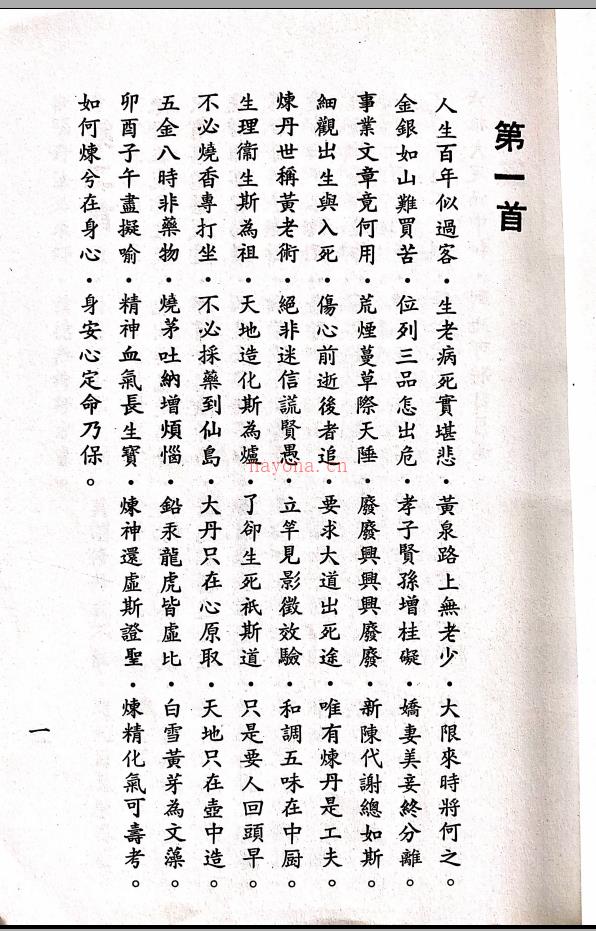 第一首
人生百年似過客．生老病死實堪悲．黃泉路上無老少．大限來時將何之。
金銀如山難買苦．位列三品怎出危．孝子賢孫增桂礙．嬌妻美妾終分離。
事業文章竟何用．荒煙蔓草際天陲．廢廢興興興廢廢．新陳代謝總如斯。
細觀出生與入死．傷心前逝後者追．要求大道出死途．唯有煉丹是工夫。
煉丹世稱黃老術．絕非迷信謊賢愚．立竿見影徵效驗．和調五味在中厨。
生理衞生斯為祖．天地造化斯為爐．了卻生死祇斯道．只是要人回頭早。
不必燒香專打坐．不必採藥到仙島．大丹只在心原取．天地只在壺中造。
五金八時非藥物．燒茅吐納增煩惱．鉛汞龍虎皆虛比．白雪黃芽為文藻。
卯酉子午盡擬喻．精神血氣長生寶．煉神還虛斯證聖．煉精化氣可壽考。
如何煉兮在身心．身安心定命乃保。
一
nayona.cn